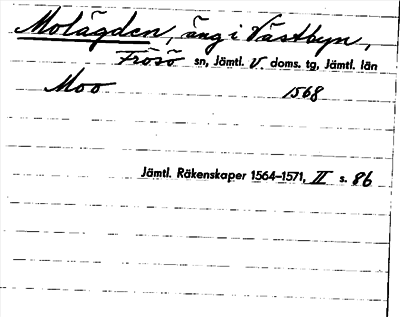 Molägden, äng i Västbyn,
Frösö sn, Jämtl. V. doms. tg, Jämtl. län
Moo 1568
Jämtl. Räkenskaper 1564–1571, II s. 86